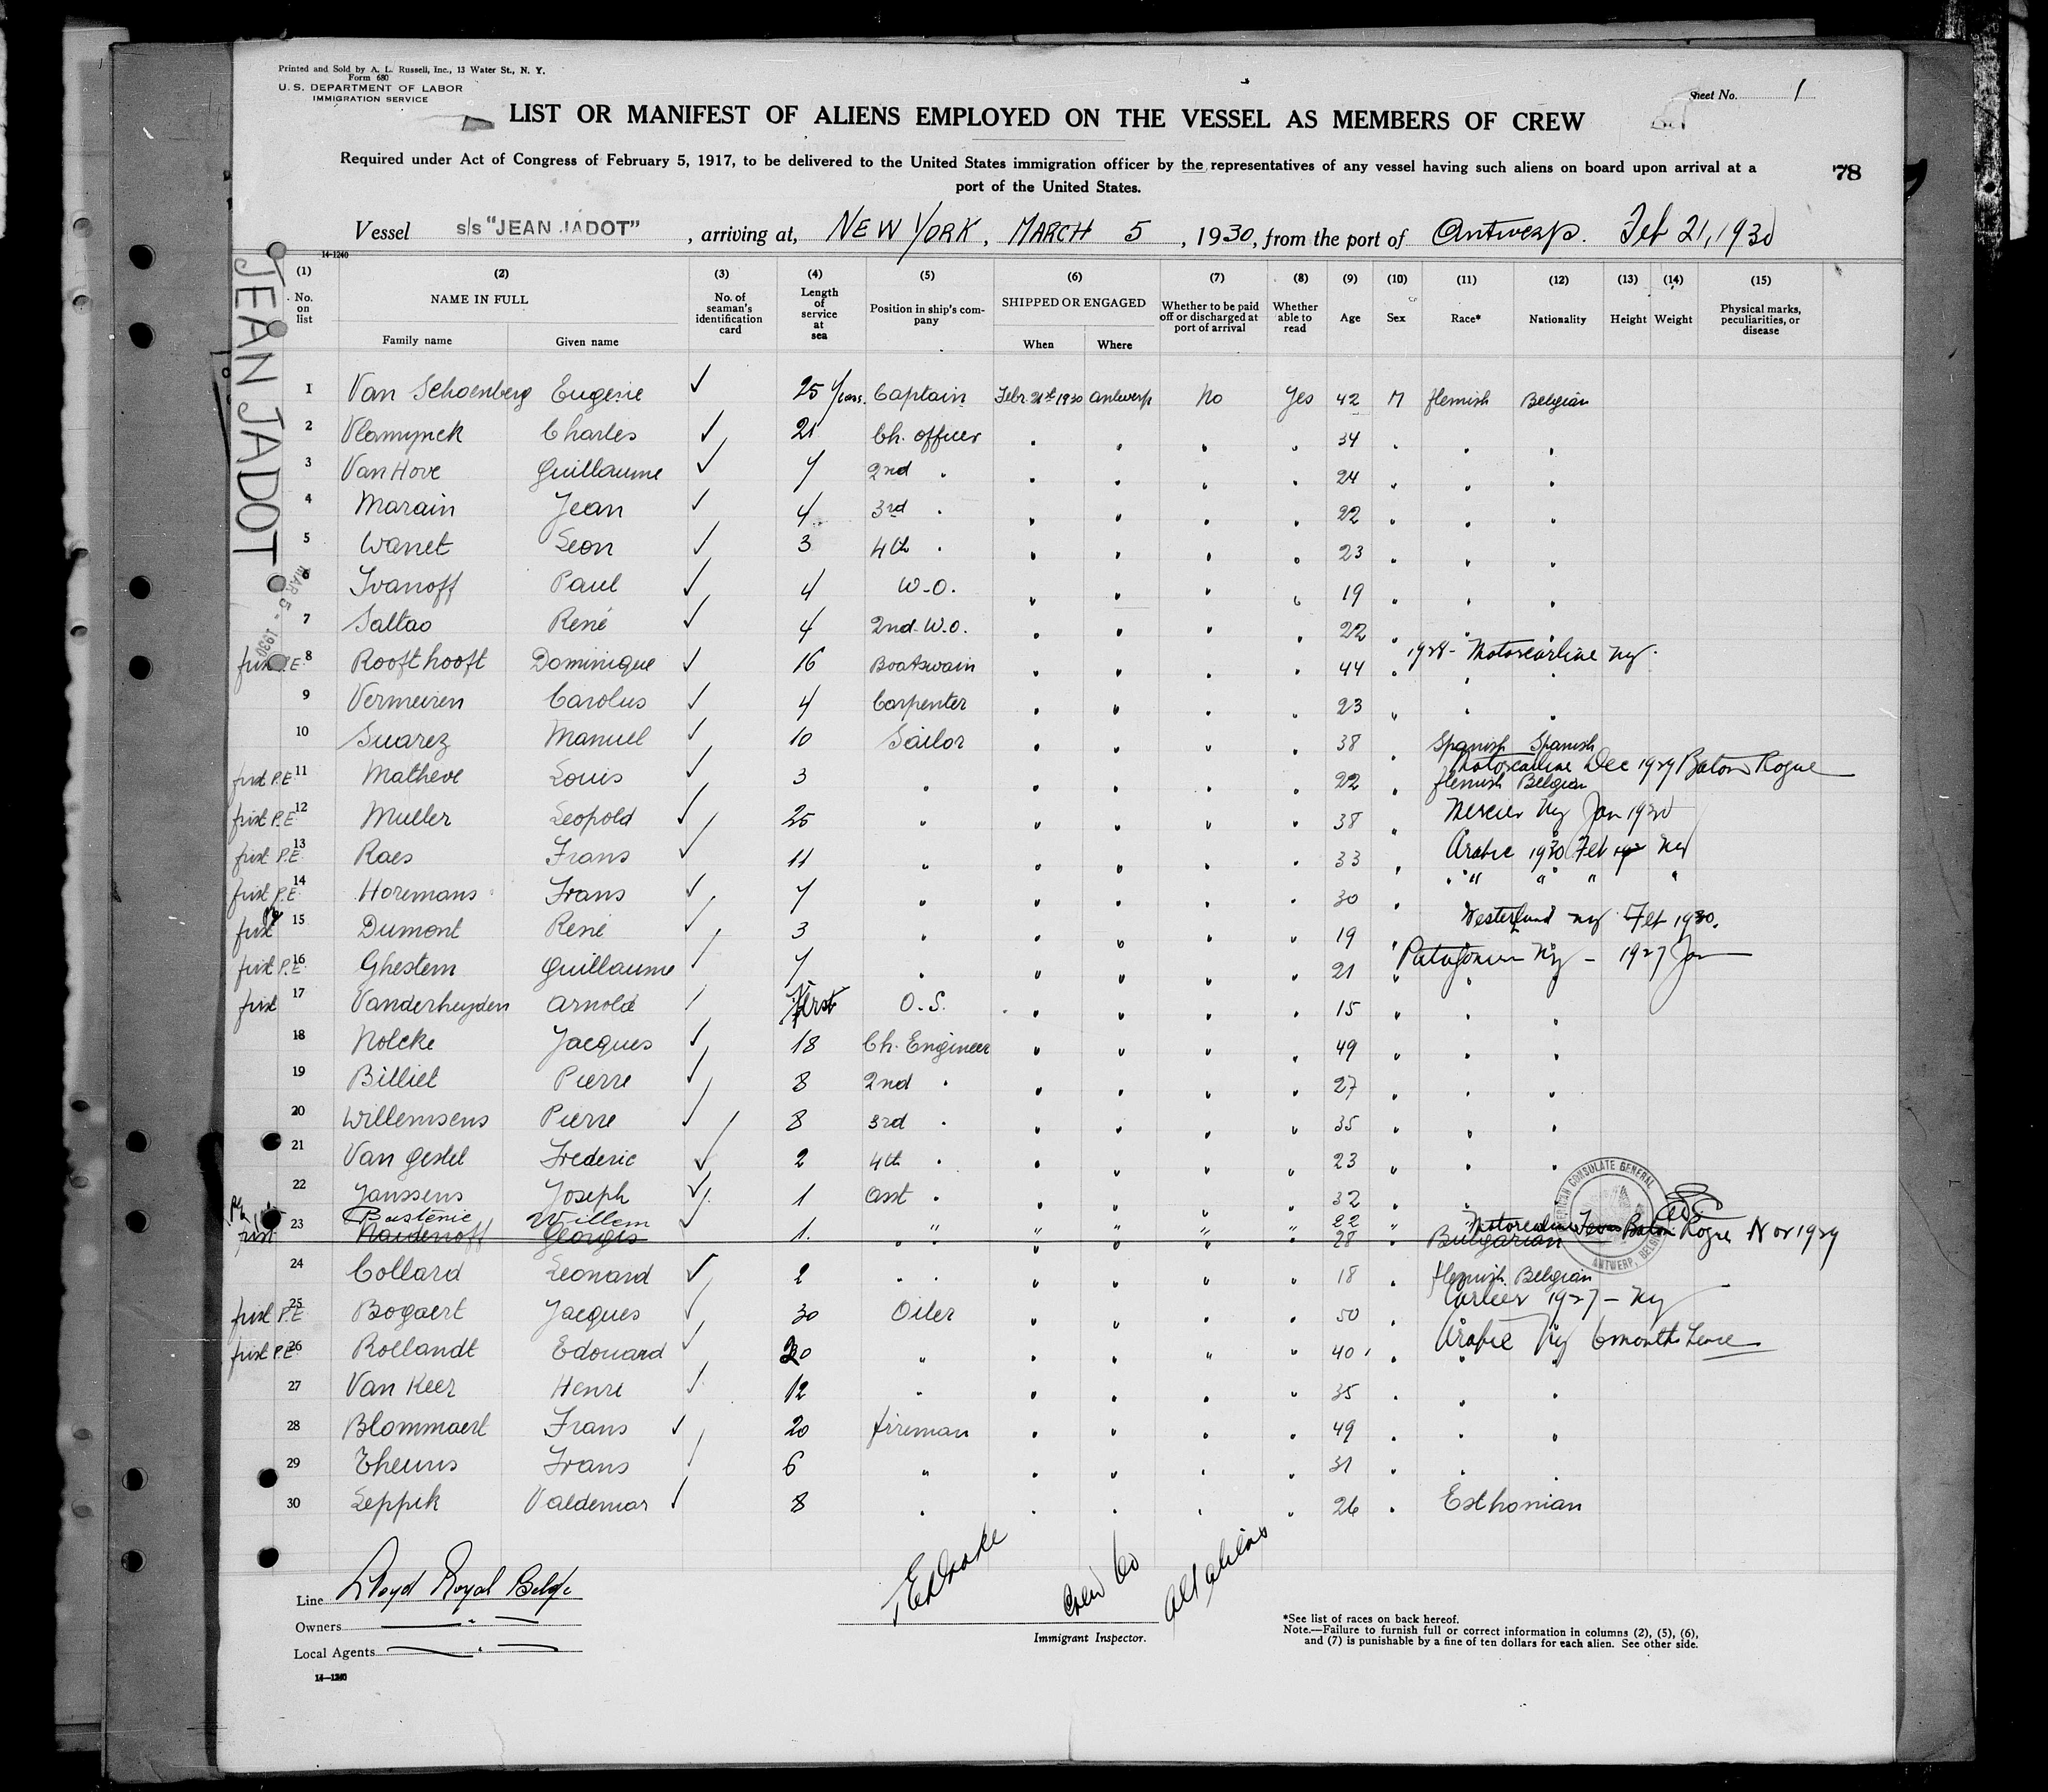 Printed and Sold by A. L. Russell, Inc., 13 Water St., N. Y.
Form 680
U. S. DEPARTMENT OF LABOR
IMMIGRATION SERVICE
Sheet No. 1
LIST OR MANIFEST OF ALIENS EMPLOYED ON THE VESSEL AS MEMBERS OF CREW
Required under Act of Congress of February 5, 1917, to be delivered to the United States immigration officer by the representatives of any vessel having such aliens on board upon arrival at a
port of the United States.
78
Vessel s/s "JEAN JADOT", arriving at, NEW YORK, MARCH 5, 1930, from the port of Antwerp. Feb 21, 1930
14-1240
JEAN JADOT
MAR 5 - 1930
(1) (2) (3) (4) (5) (6) (7) (8) (9) (10) (11) (12) (13) (14) (15)
No. on list NAME IN FULL Family name Given name No. of seaman's identification card Length of service at sea Position in ship's company SHIPPED OR ENGAGED When Where Whether to be paid off or discharged at port of arrival Whether able to read Age Sex Race* Nationality Height Weight Physical marks, peculiarities, or disease
1 Van Schoenberg Eugene ✓ 25 years. Captain Febr. 21st 1930 Antwerp No Yes 42 M flemish Belgian
2 Vlamynck Charles ✓ 21 Ch. officer " " " " 34 " " "
3 Van Hove Guillaume ✓ 7 2nd " " " " " 24 " " "
4 Marain Jean ✓ 4 3rd " " " " " 22 " " "
5 Wanet Leon ✓ 3 4th " " " " " 23 " " "
6 Ivanoff Paul ✓ 4 W.O. " " " " 19 " " "
7 Saltao René ✓ 4 2nd W.O. " " " " 22 " " "
first P.E. 8 Rooft hooft Dominique ✓ 16 Boatswain " " " " 44 " 1928 - Motorcarline Ny.
9 Vermeiren Carolus ✓ 4 Carpenter " " " " 23 " " "
10 Suarez Manuel ✓ 10 Sailor " " " " 38 " Spanish Spanish
first P.E. 11 Matheve Louis ✓ 3 " " " " " 22 " flemish Belgian Motorcarline Dec 1929 Baton Rogue
first P.E. 12 Muller Leopold ✓ 25 " " " " " 38 " Mercier Ny Jan 1930
first P.E. 13 Raes Frans ✓ 11 " " " " " 33 " Arabic 1930 Feb Ny
first P.E. 14 Horemans Frans ✓ 7 " " " " " 30 " " " " "
first 15 Dumont René ✓ 3 " " " " " 19 " Westerland ny Feb 1930.
first P.E. 16 Ghestem Guillaume ✓ 7 " " " " " 21 " Patagonier Ny - 1927 Jan
first 17 Vanderheyden Arnold ✓ first O.S. " " " " 15 " " "
18 Nolcke Jacques ✓ 18 Ch. Engineer " " " " 49 " " "
19 Billiet Pierre ✓ 8 2nd " " " " " 27 " " "
20 Willemsens Pierre ✓ 8 3rd " " " " " 35 " " "
21 Van Gestel Frederic ✓ 2 4th " " " " " 23 " " "
22 Janssens Joseph ✓ 1 Asst " " " " " 32 " " "
Bastenie Willem ✓ " " " " " 22 " Baton Rogue Nov 1929
first 23 Naidenoff Georgis 1. " " " " " " 28 " Bulgarian
AMERICAN CONSULATE GENERAL ANTWERP, BELGIUM
24 Collard Leonard ✓ 2 " " " " " " 18 " flemish Belgian
first P.E. 25 Bogaert Jacques ✓ 30 Oiler " " " " 50 " Carlier 1927 - Ny
first P.E. 26 Rollandt Edouard ✓ 20 " " " " " 40 " Arabic Ny 6 months
27 Van Keer Henri ✓ 12 " " " " " 35 " " "
28 Blommaert Frans ✓ 20 fireman " " " " 49 " " "
29 Theunis Frans ✓ 6 " " " " " 31 " " "
30 Leppik Valdemar ✓ 8 " " " " " 26 " Esthonian
Line Lloyd Royal Belge
Owners — " —
Local Agents — " —
14-1240
Immigrant Inspector.
*See list of races on back hereof.
Note.—Failure to furnish full or correct information in columns (2), (5), (6),
and (7) is punishable by a fine of ten dollars for each alien. See other side.